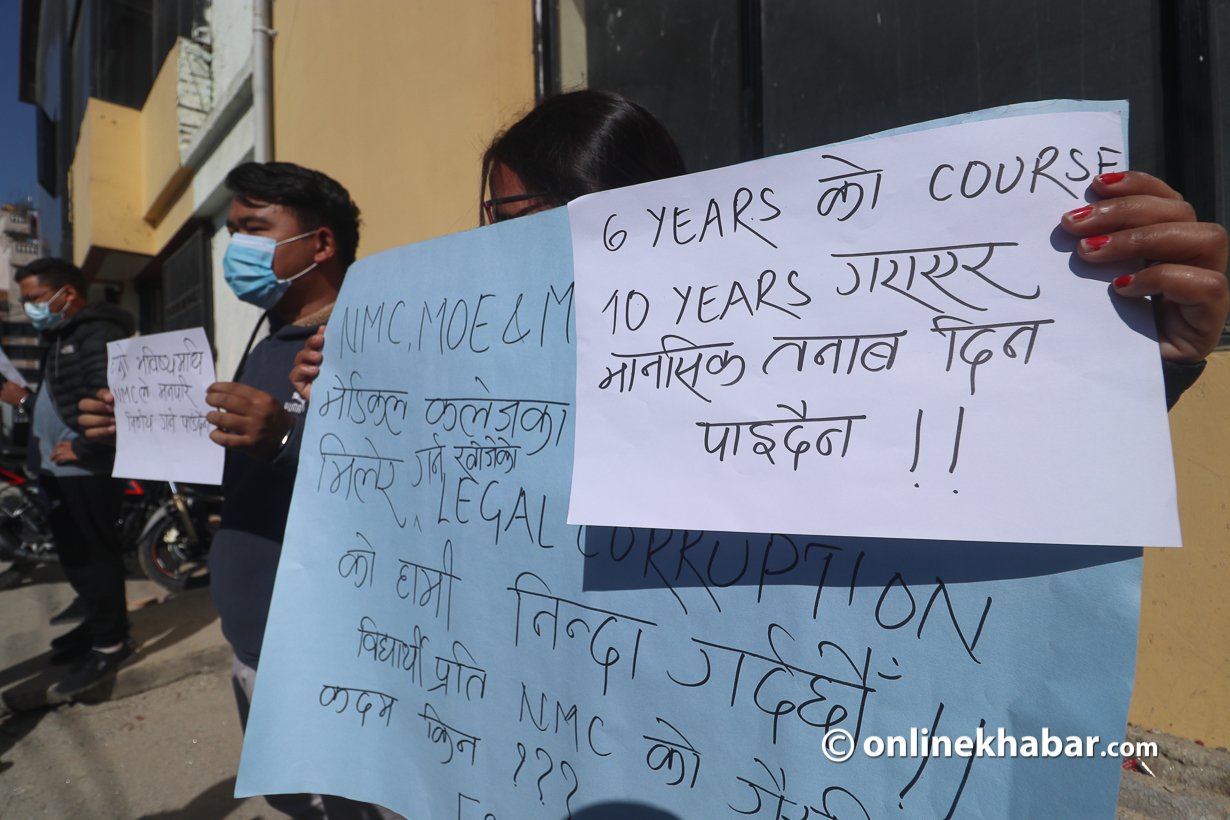 6 YEARS को COURSE
10 YEARS गराएर
मानसिक तनाब दिन
पाइदैन !!
NMC, MOE & M
मेडिकल कलेजका
मिलेर गर्न खोजेको
LEGAL CORRUPTION
को हामी निन्दा गर्दछौं !!
विद्यार्थी प्रति NMC को
कदम किन ???
भविष्यमाथि
NMC ले मनपरी
निर्णय गर्न पाउँदैन
© onlinekhabar.com